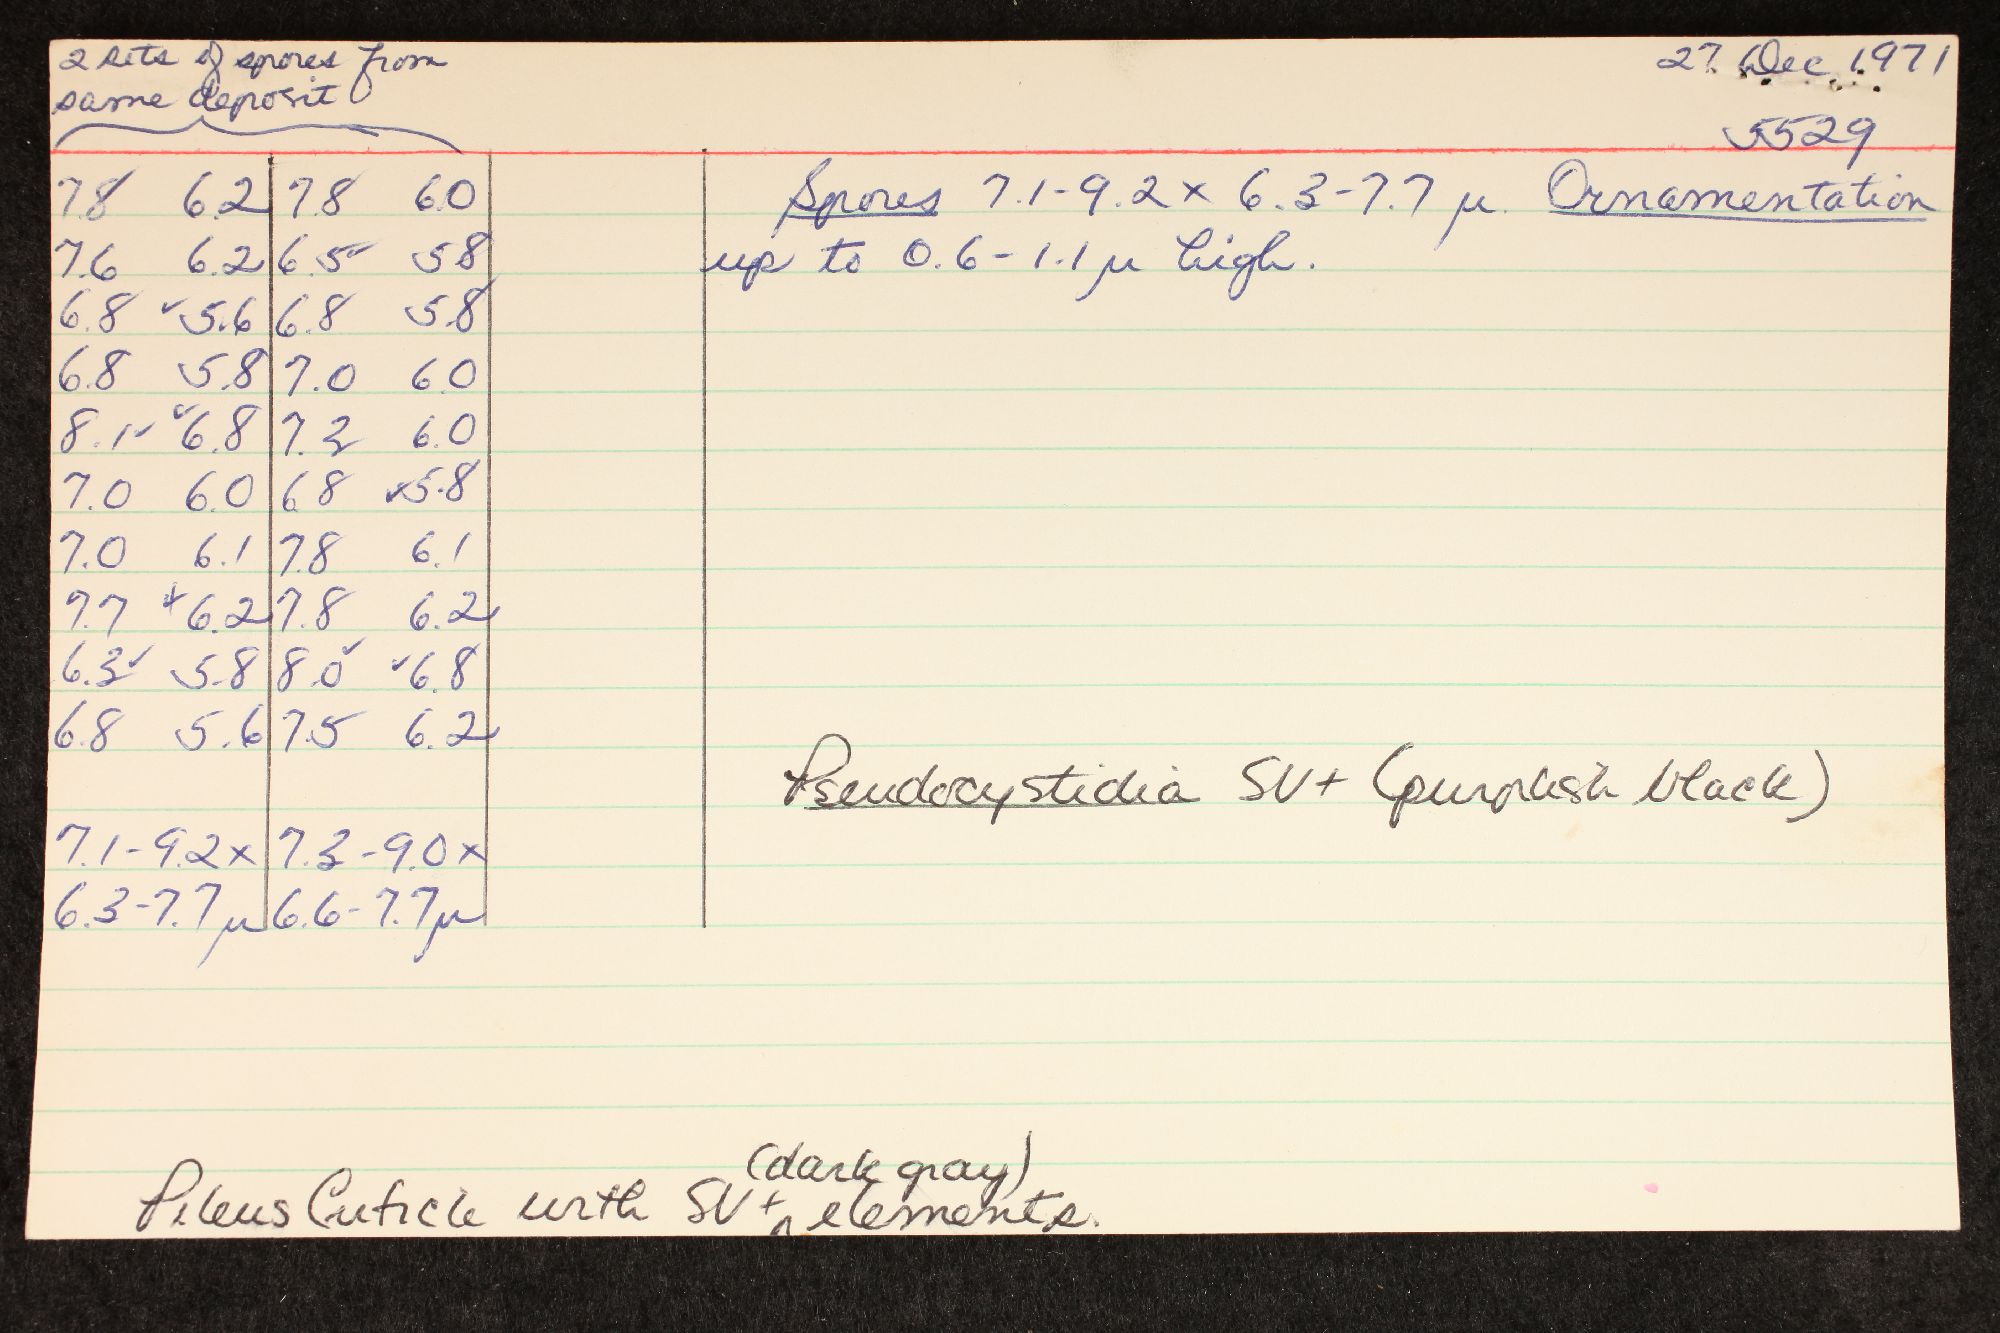 2 sets of spores from
same deposit
27 Dec 1971
5529
7.8 6.2 7.8 6.0
7.6 6.2 6.5 5.8
6.8 5.6 6.8 5.8
6.8 5.8 7.0 6.0
8.1 6.8 7.2 6.0
7.0 6.0 6.8 5.8
7.0 6.1 7.8 6.1
7.7 6.2 7.8 6.2
6.3 5.8 8.0 6.8
6.8 5.6 7.5 6.2
7.1-9.2x 7.3-9.0x
6.3-7.7µ 6.6-7.7µ
Spores 7.1-9.2 x 6.3-7.7 µ. Ornamentation
up to 0.6-1.1µ high.
Pseudocystidia SV+ (purplish black)
(dark gray)
Pileus Cuticle with SV+ ^ elements.